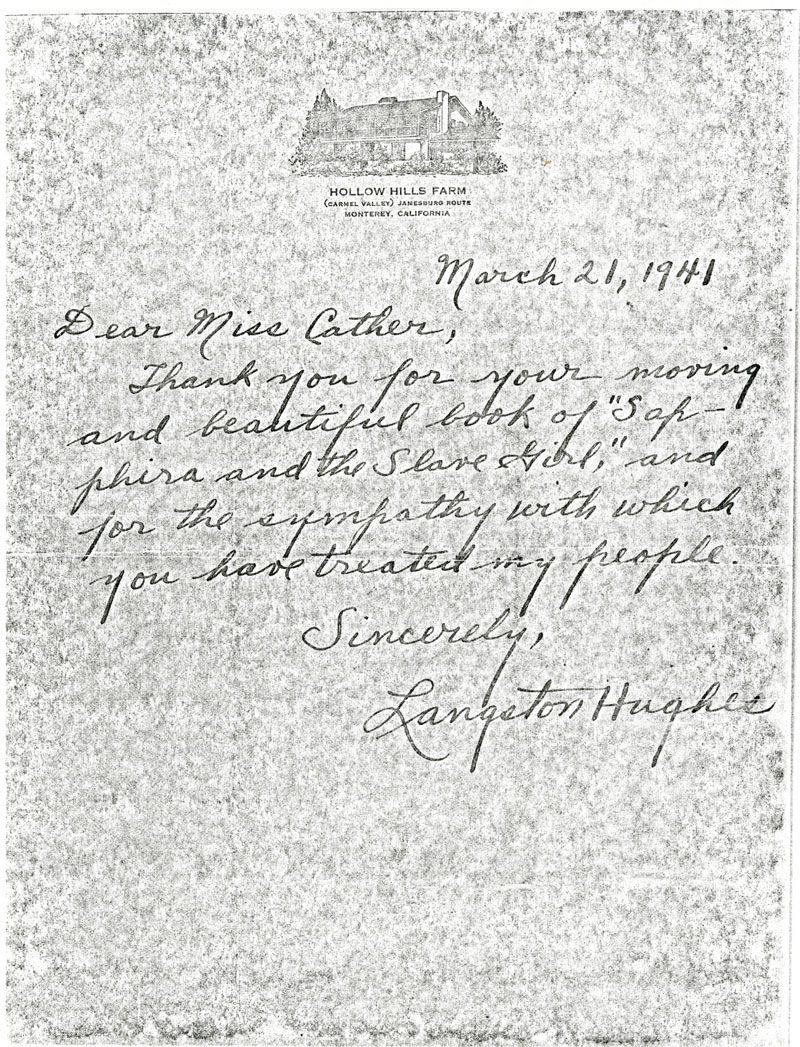 HOLLOW HILLS FARM
(CARMEL VALLEY) JAMESBURG ROUTE
MONTEREY, CALIFORNIA
March 21, 1941
Dear Miss Cather,
Thank you for your moving
and beautiful book of "Sap-
phira and the Slave Girl," and
for the sympathy with which
you have treated my people.
Sincerely,
Langston Hughes